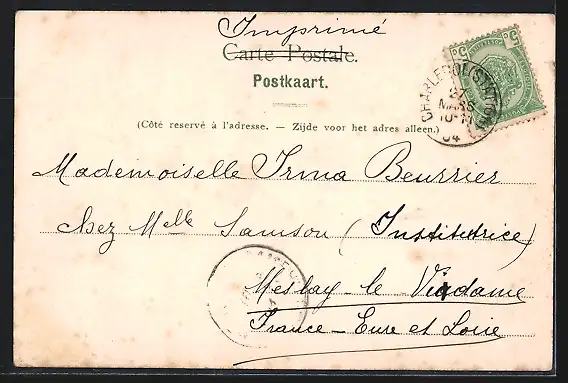 Imprimé
Carte Postale.
Postkaart.
(Côté reservé à l'adresse. – Zijde voor het adres alleen.)
CHARLEROI (STATION)
MARS
10-11
04
Mademoiselle Irma Beurrier
chez Melle Samson (Institutrice)
Meslay-le Vidame
France – Eure et Loire